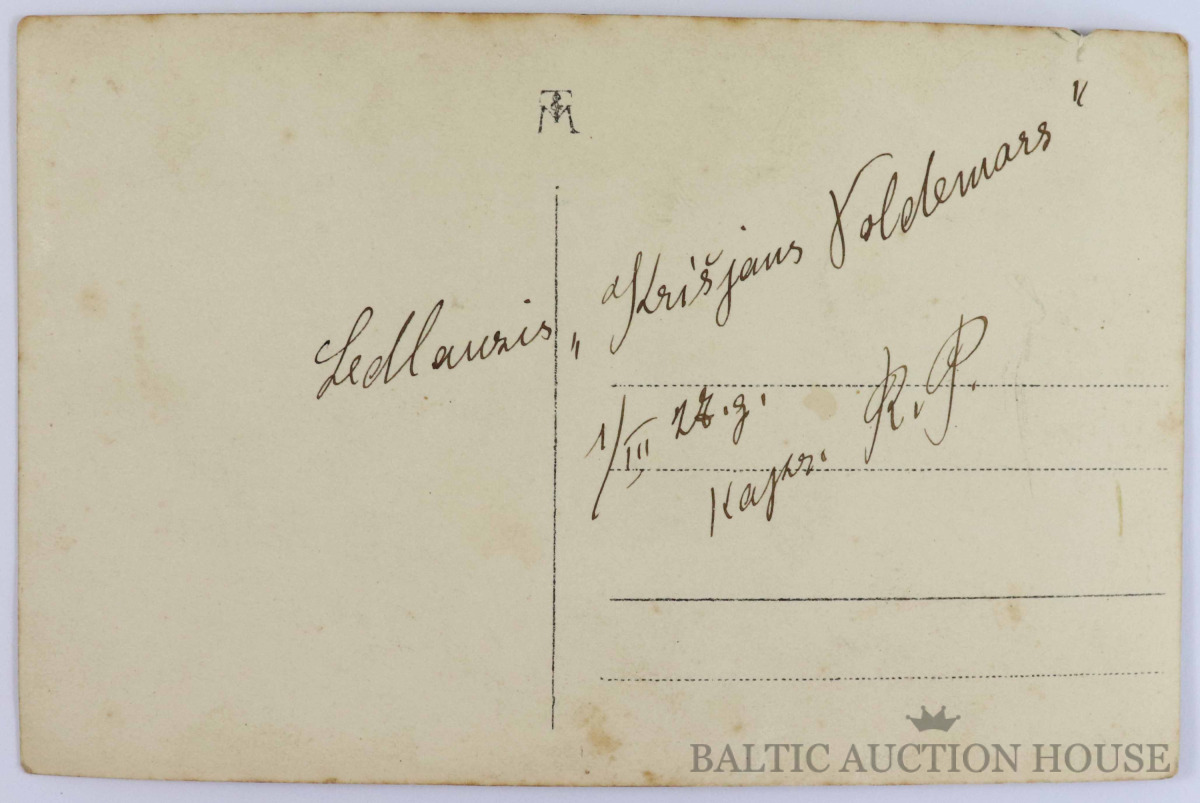 Ledlauzis „Krišjans Voldemars"
1/III 27. g.
R. P.
BALTIC AUCTION HOUSE